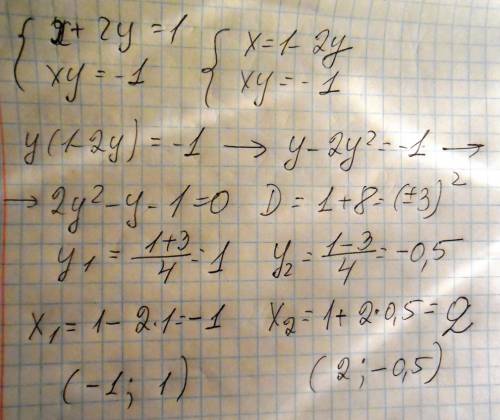 { x + 2y = 1 { x = 1 - 2y
xy = -1 xy = -1
y(1-2y) = -1 → y - 2y² = -1 →
→ 2y² - y - 1 = 0 D = 1 + 8 = (±3)²
y₁ = (1+3)/4 = 1 y₂ = (1-3)/4 = -0,5
x₁ = 1 - 2·1 = -1 x₂ = 1 + 2·0,5 = 2
(-1; 1) (2; -0,5)